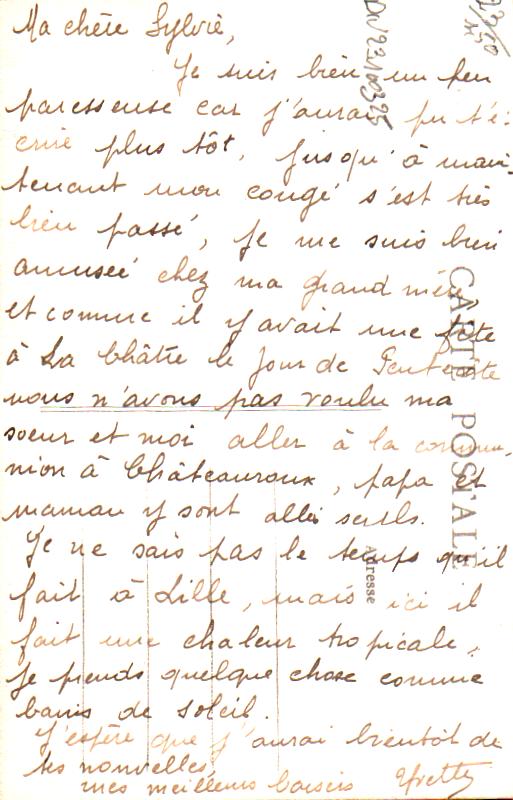 Ma chère Sylvie,
Je suis bien un peu
paresseuse car j'aurais pu t'é-
crire plus tôt, jusqu'à main-
tenant mon congé s'est très
bien passé, je me suis bien
amusée chez ma grand mère
et comme il y avait une fête
à La Châtre le jour de Pentecôte
nous n'avons pas voulu ma
soeur et moi aller à la commu-
nion à Châteauroux, papa et
maman y sont allés seuls.
Je ne sais pas le temps qu'il
fait à Lille, mais ici il
fait une chaleur tropicale,
je prends quelque chose comme
bains de soleil.
J'espère que j'aurai bientôt de
tes nouvelles
mes meilleurs baisers Yvette
CARTE POSTALE
Adresse